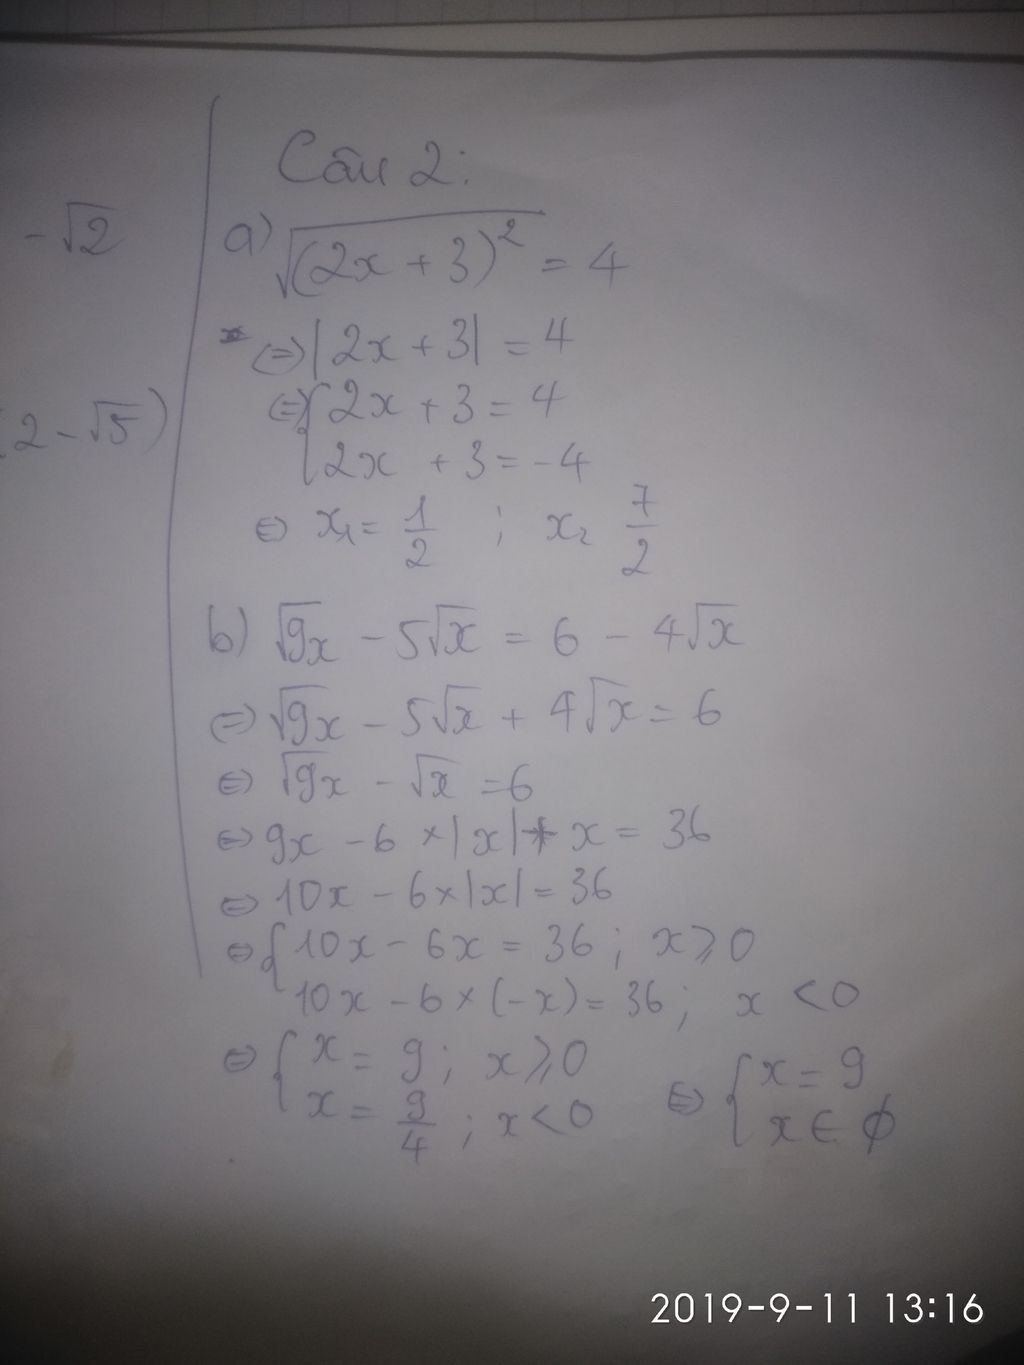 - √2
2 - √5)
Câu 2:
a) √(2x + 3)² = 4
⇔ |2x + 3| = 4
⇔ { 2x + 3 = 4
2x + 3 = -4
⇔ x₁ = 1/2 ; x₂ 7/2
b) √9x - 5√x = 6 - 4√x
⇔ √9x - 5√x + 4√x = 6
⇔ √9x - √x = 6
⇔ 9x - 6 × |x| + x = 36
⇔ 10x - 6 × |x| = 36
⇔ { 10x - 6x = 36 ; x ⩾ 0
10x - 6 × (-x) = 36 ; x < 0
⇔ { x = 9 ; x ⩾ 0
x = 9/4 ; x < 0
⇔ { x = 9
x ∈ ϕ
2019-9-11 13:16